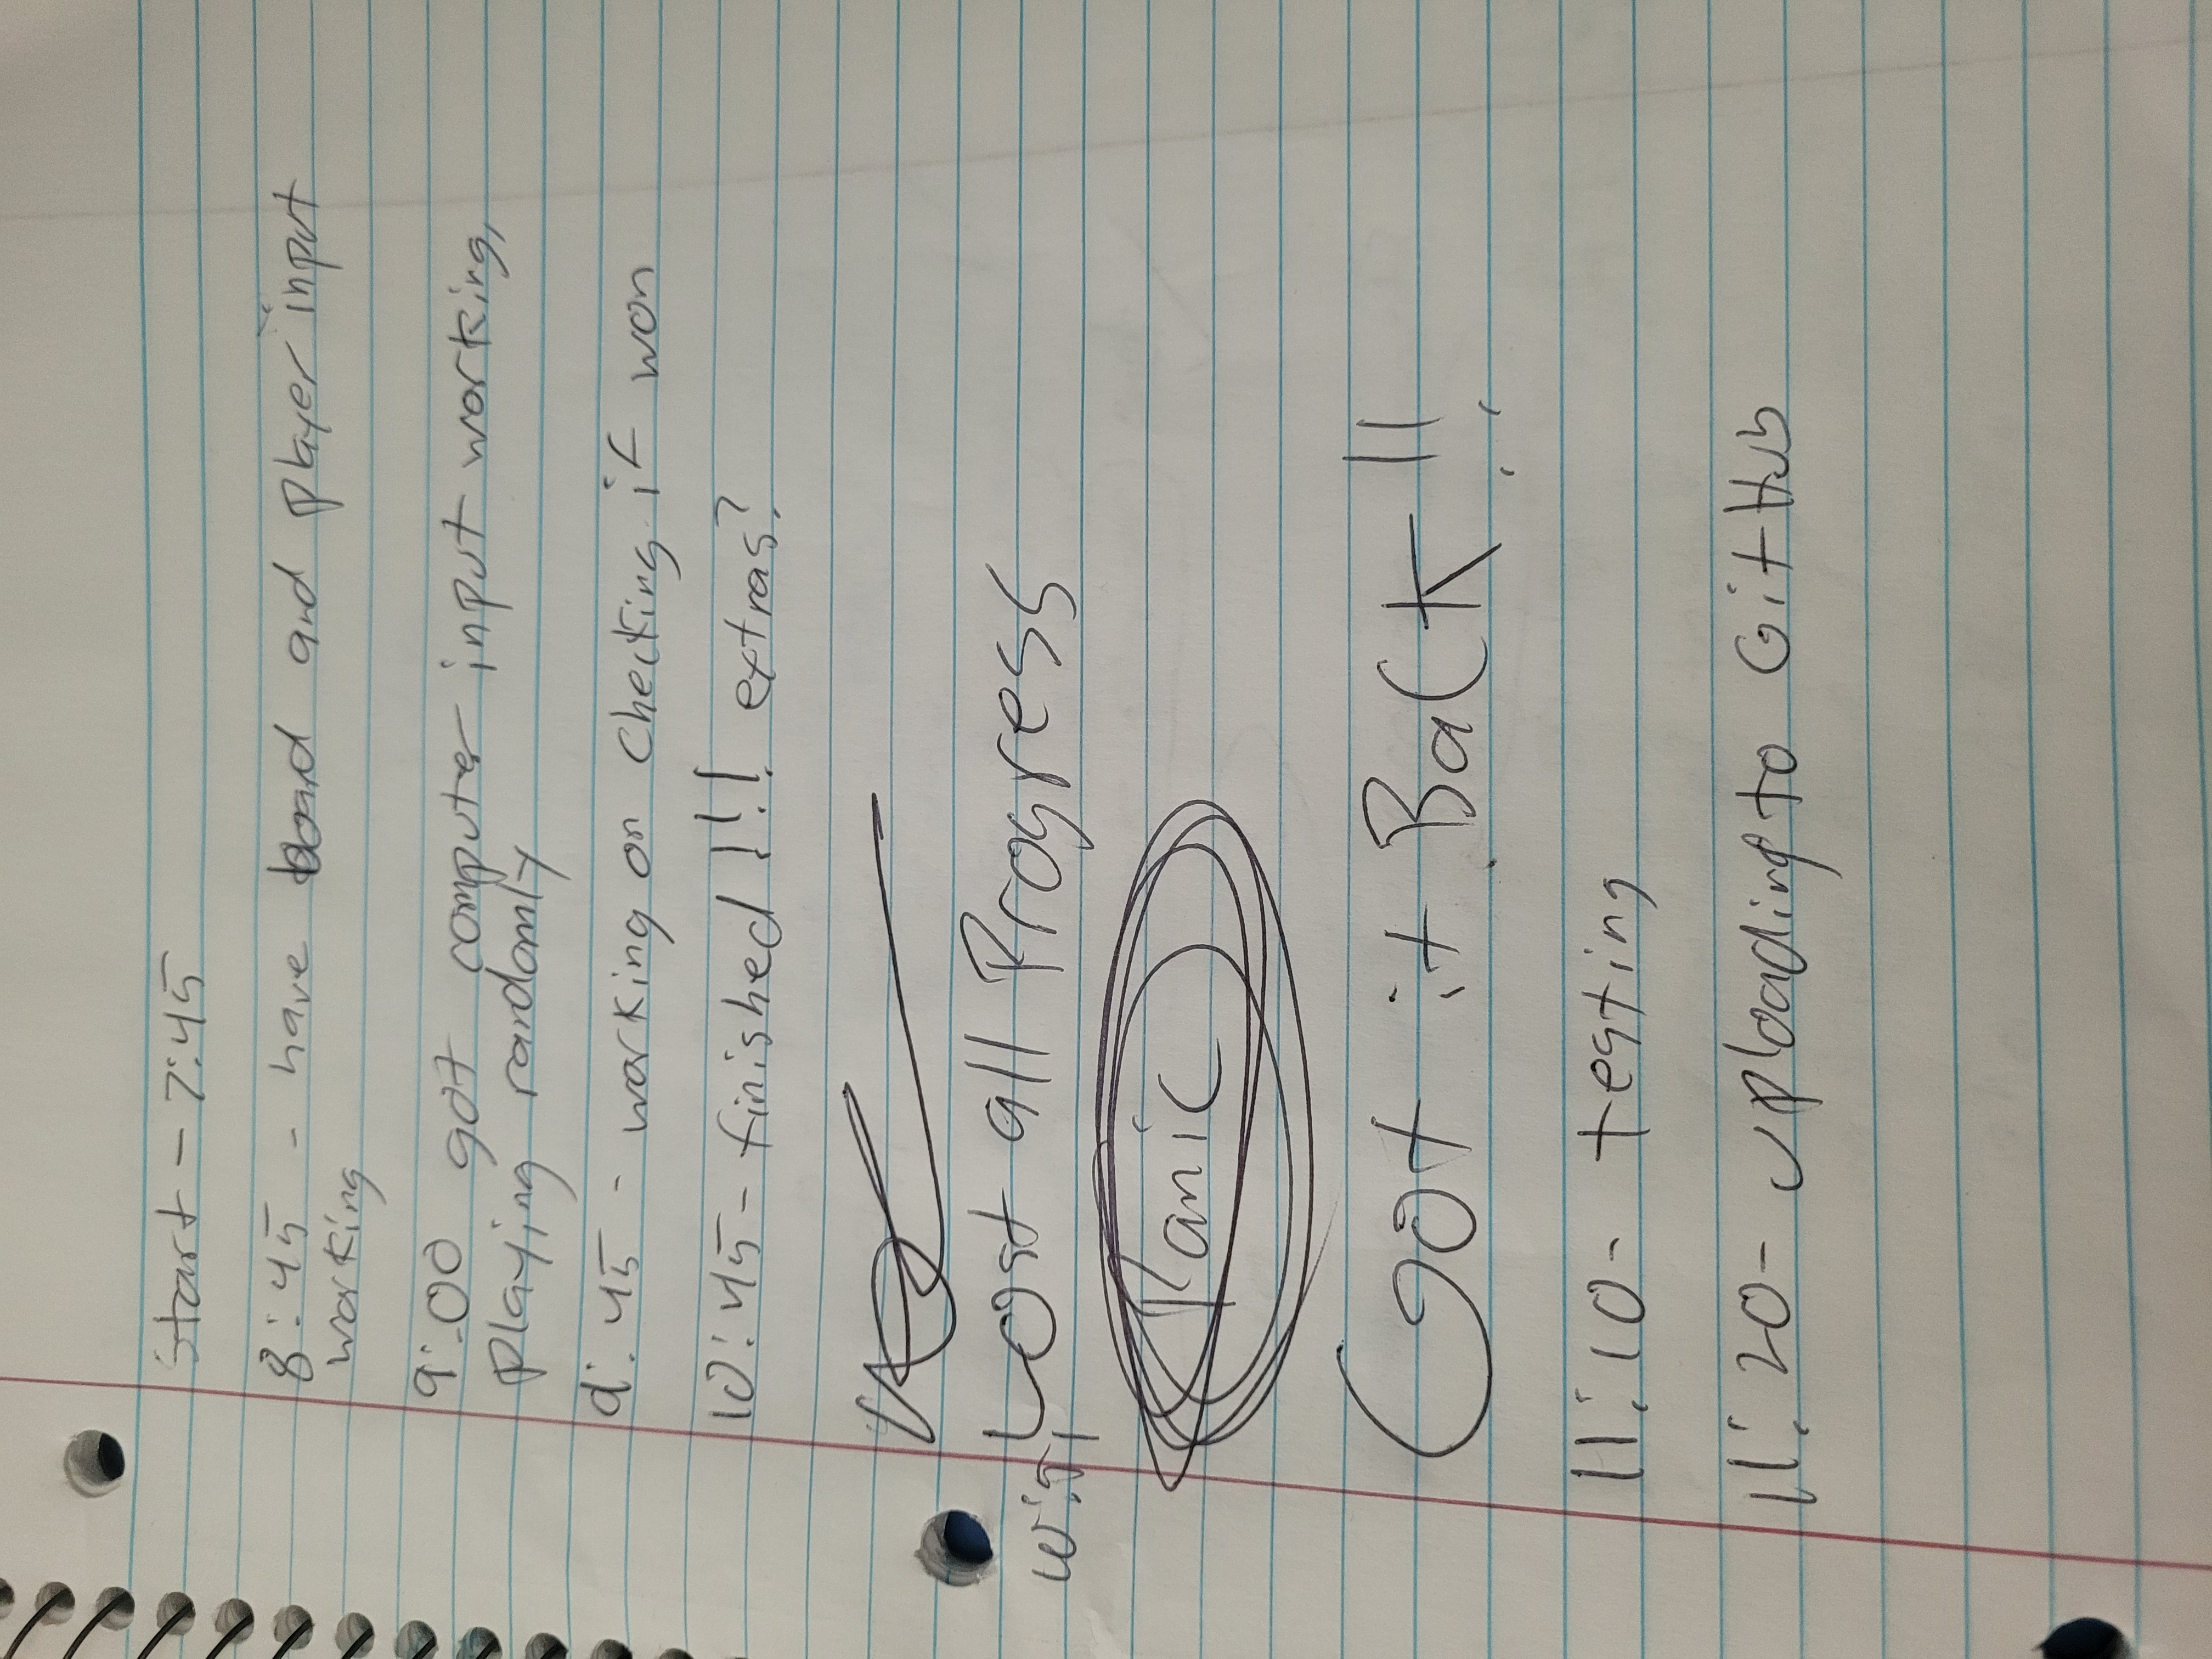 Start - 7:45
8:45 - have board and player input
working
9:00 got computer input working,
playing randomly
9:45 - working on checking if won
10:45 - finished!!! extras?
Lost all Progress
wifi
Panic
Got it Back!!
11:10 - testing
11:20 - uploading to GitHub